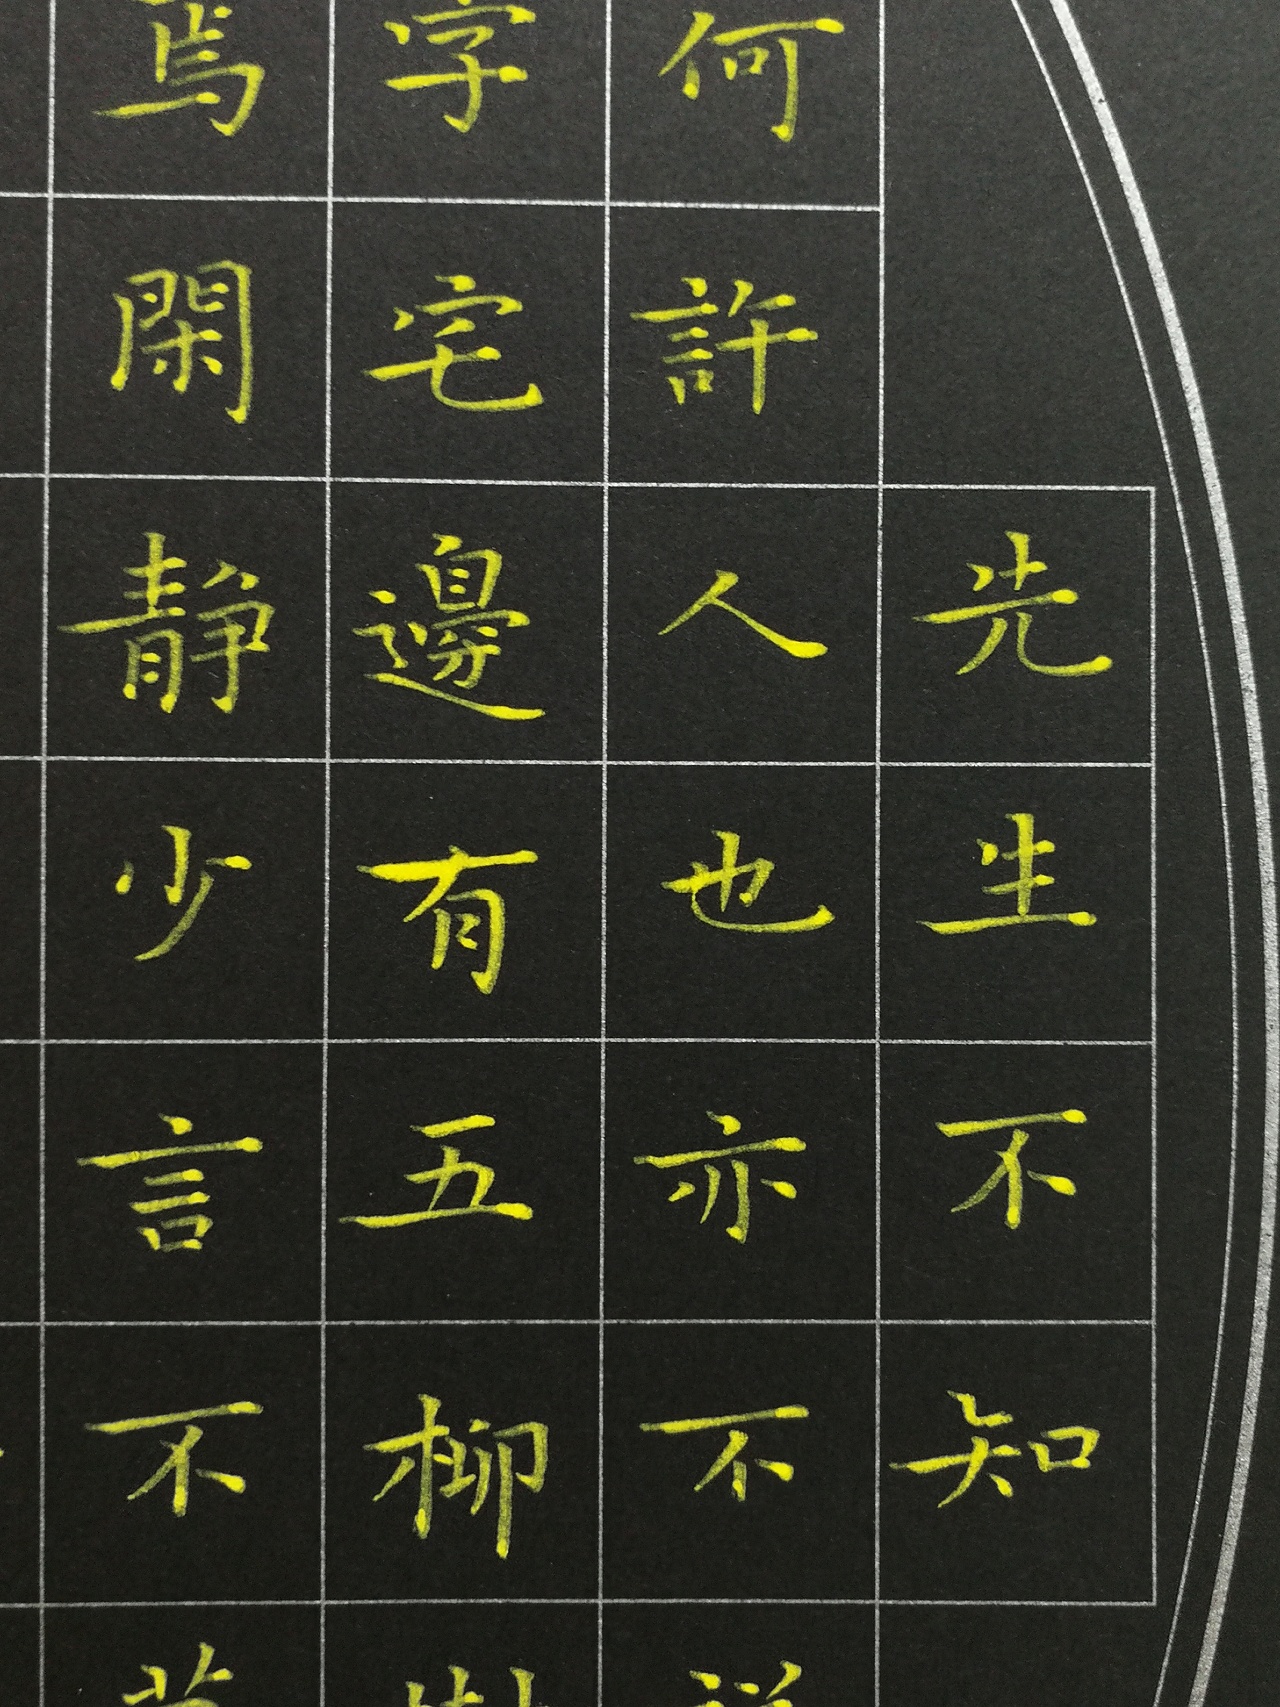 先生不知
何許人也亦不詳
字宅邊有五柳樹
焉閑靜少言不慕